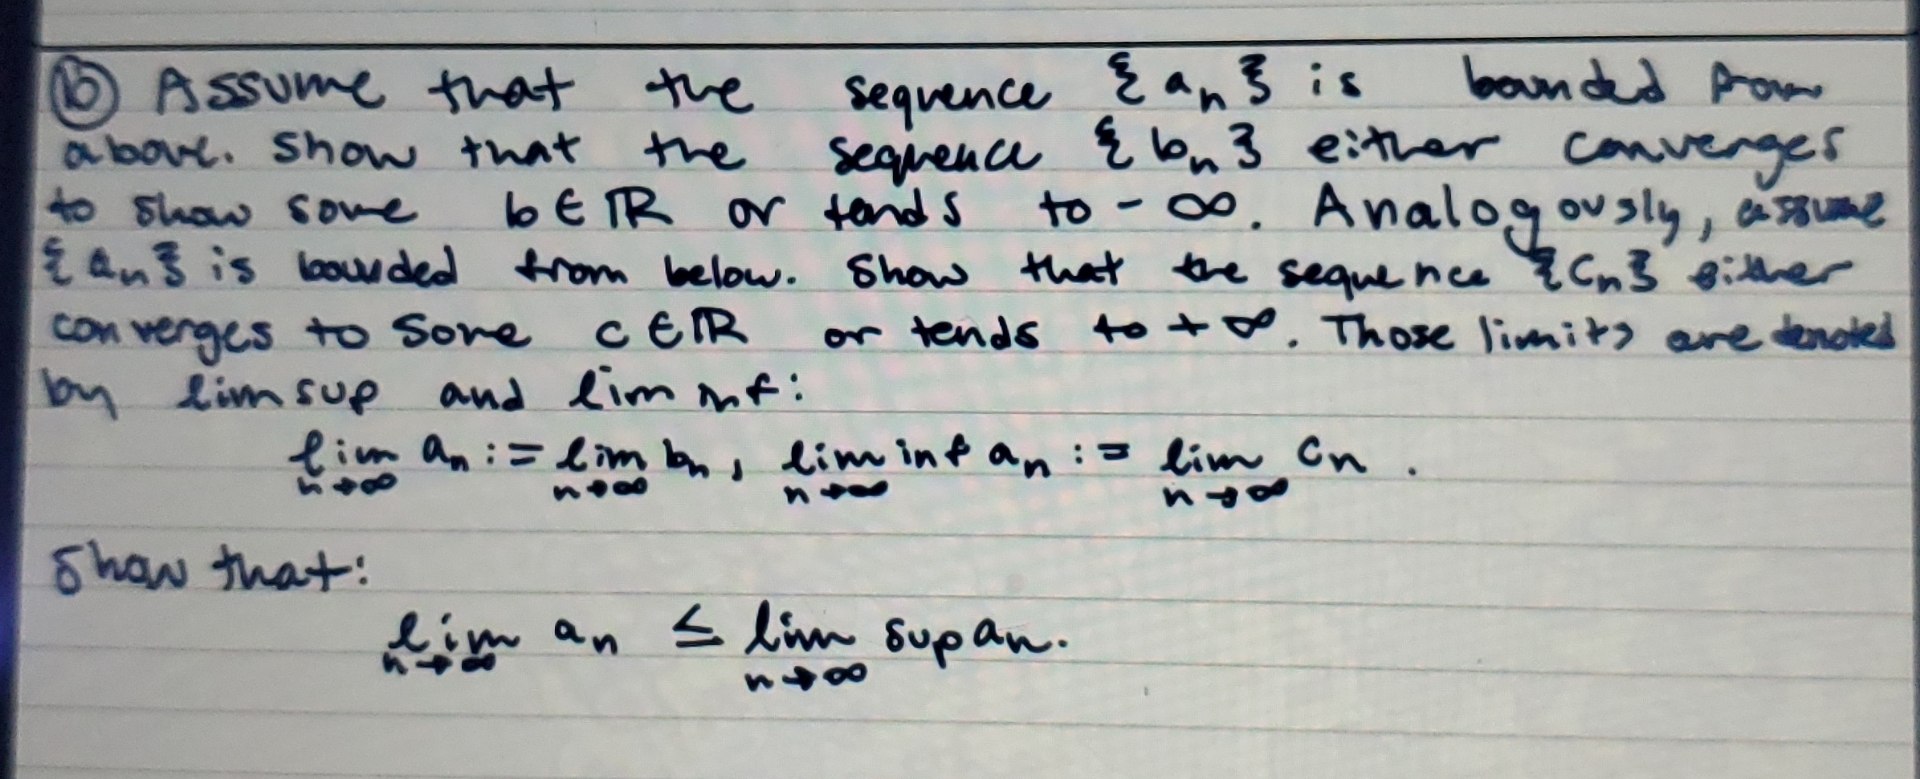 ⓑ Assume that the sequence {an} is bounded from
above. Show that the sequence {bn} either converges
to show some b∈ℝ or tends to -∞. Analogously, assume
{an} is bounded from below. Show that the sequence {Cn} either
converges to some c∈ℝ or tends to +∞. Those limits are denoted
by lim sup and lim inf:
lim an := lim bn, lim inf an := lim Cn.
n→∞ n→∞ n→∞ n→∞
Show that:
lim an ≤ lim sup an.
n→∞ n→∞